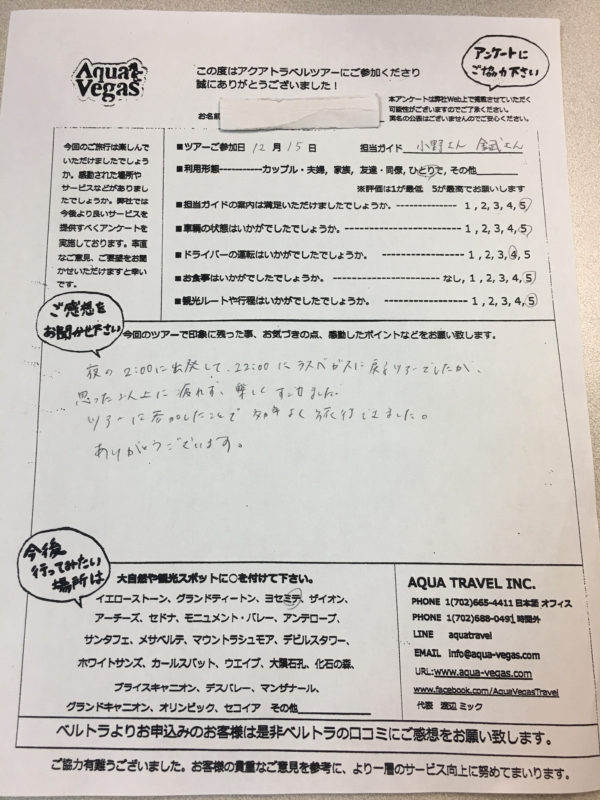 Aqua Vegas
この度はアクアトラベルツアーにご参加くださり
誠にありがとうございました！
アンケートに
ご協力下さい
本アンケートは弊社Web上で掲載させていただく
可能性がございますのでご了承ください。
実名の公表はございませんのでご安心ください。
お名前
今回のご旅行は楽しんで
いただけましたでしょう
か。感動された場所や
サービスなどがありまし
たでしょうか。弊社では
今後より良いサービスを
提供すべくアンケートを
実施しております。率直
なご意見、ご要望をお聞
かせいただけますと幸い
です。
■ツアーご参加日 12 月 15 日 担当ガイド 小野さん
■利用形態-----------カップル・夫婦, 家族, 友達・同僚, ひとりで, その他
※評価は1が最低 5が最高でお願いします
■担当ガイドの案内は満足いただけましたでしょうか。 1, 2, 3, 4, 5
■車輌の状態はいかがでしたでしょうか。 1, 2, 3, 4, 5
■ドライバーの運転はいかがでしたでしょうか。 1, 2, 3, 4, 5
■お食事はいかがでしたでしょうか。 なし, 1, 2, 3, 4, 5
■観光ルートや行程はいかがでしたでしょうか。 1, 2, 3, 4, 5
ご感想を
お聞かせ下さい
今回のツアーで印象に残った事、お気づきの点、感動したポイントなどをお願い致します。
夜の2:00に出発して、22:00にラスベガスに戻るツアーでしたが、
思った以上に疲れず、楽しくすごせました。
ツアーに参加したことで効率よく旅行できました。
ありがとうございます。
今後
行ってみたい
場所は
大自然や観光スポットに○を付けて下さい。
イエローストーン、グランドティートン、ヨセミテ、ザイオン、
アーチーズ、セドナ、モニュメント・バレー、アンテロープ、
サンタフェ、メサベルデ、マウントラシュモア、デビルスタワー、
ホワイトサンズ、カールスバット、ウエイブ、大隕石孔、化石の森、
ブライスキャニオン、デスバレー、マンザナール、
グランドキャニオン、オリンピック、セコイア その他
AQUA TRAVEL INC.
PHONE 1(702)665-4411 日本語 オフィス
PHONE 1(702)688-0491 時間外
LINE aquatravel
EMAIL info@aqua-vegas.com
URL:www.aqua-vegas.com
www.facebook.com/AquaVegasTravel
代表 渡辺 ミック
ベルトラよりお申込みのお客様は是非ベルトラの口コミにご感想をお願い致します。
ご協力有難うございました。お客様の貴重なご意見を参考に、より一層のサービス向上に努めてまいります。